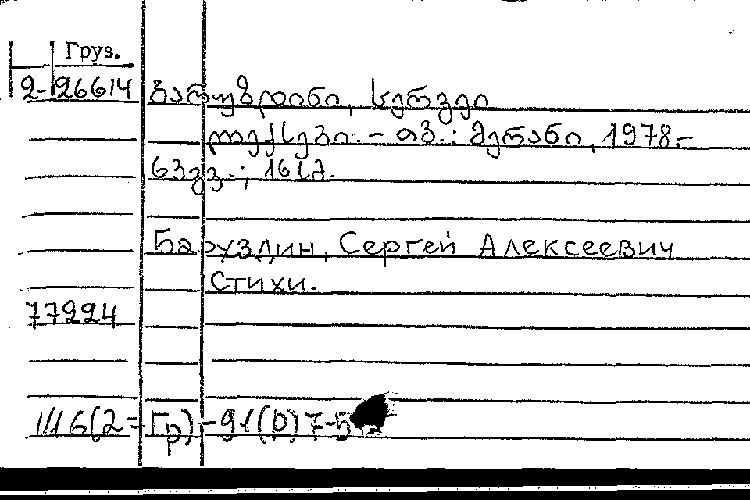 Груз.
2-26614 ბარუზდინი, სერგეი
ლექსები. - თბ.: მერანი, 1978.-
63გვ.; 16სმ.
Баруздин, Сергей Алексеевич
Стихи.
77224
Ш6(2=Гр)-91(0)7-5